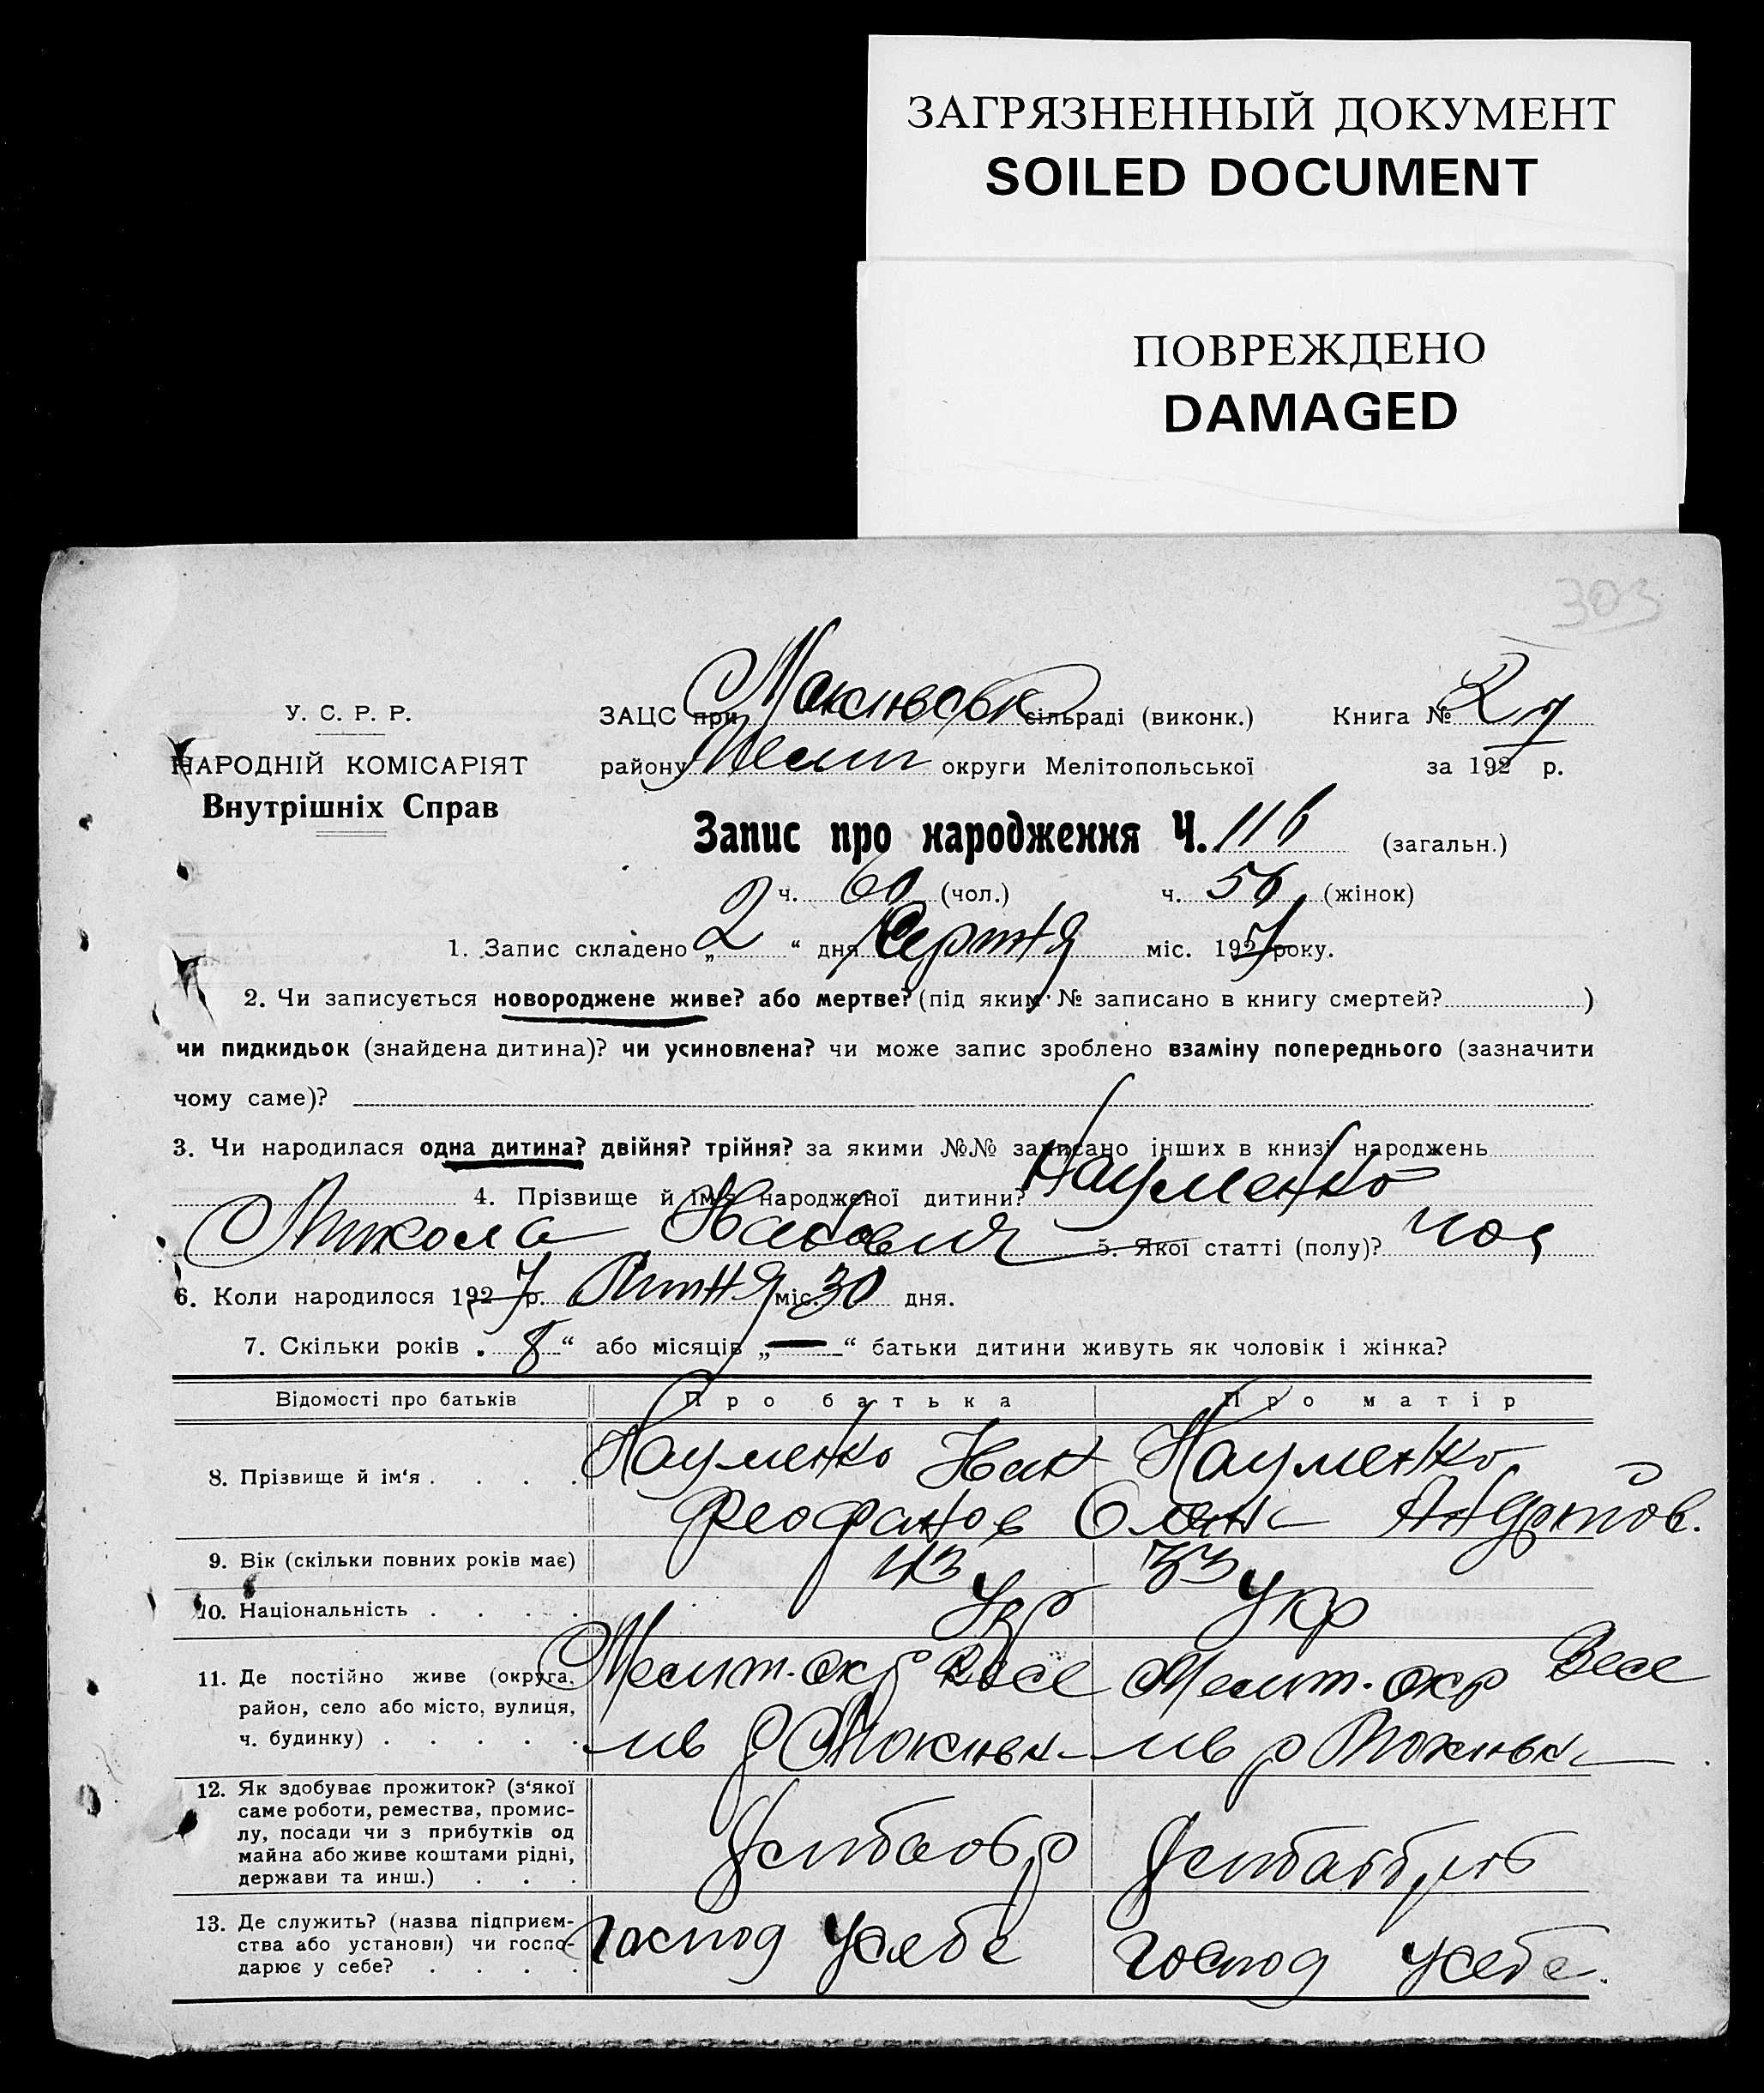 ЗАГРЯЗНЕННЫЙ ДОКУМЕНТ
SOILED DOCUMENT
ПОВРЕЖДЕНО
DAMAGED
303
У. С. Р. Р.
НАРОДНІЙ КОМІСАРІЯТ
Внутрішніх Справ
ЗАЦС при сільраді (виконк.) Книга № 2
району округи Мелітопольської за 1927 р.
Запис про народження Ч. 116 (загальн.)
ч. 60 (чол.) ч. 56 (жінок)
1. Запис складено „ 2 “ дня Серпня міс. 1927 року.
2. Чи записується новороджене живе? або мертве? (під яким № записано в книгу смертей? )
чи пидкидьок (знайдена дитина)? чи усиновлена? чи може запис зроблено взаміну попереднього (зазначити
чому саме)?
3. Чи народилася одна дитина? двійня? трійня? за якими №№ записано інших в книзі народжень
4. Прізвище й ім'я народженої дитини? Науменко
Микола 5. Якої статті (полу)? чол
6. Коли народилося 1927 р. Липня міс. 30 дня.
7. Скільки років „ 8 “ або місяців „ — “ батьки дитини живуть як чоловік і жінка?
Відомості про батьків Про батька Про матір
8. Прізвище й ім'я . . . . Науменко Иван Науменко
Феофанов
9. Вік (скільки повних років має) 43 33
10. Національність . . . . Укр Укр
11. Де постійно живе (округа, Мелит. окр Весе Мелит. окр Весе
район, село або місто, вулиця, лів р лів р
ч. будинку) . . . . .
12. Як здобуває прожиток? (з'якої
саме роботи, ремества, промис-
лу, посади чи з прибутків од
майна або живе коштами рідні,
держави та инш.) . . .
13. Де служить? (назва підприєм- Господ у себе Господ у себе.
ства або установи) чи госпо-
дарює у себе? . . . .